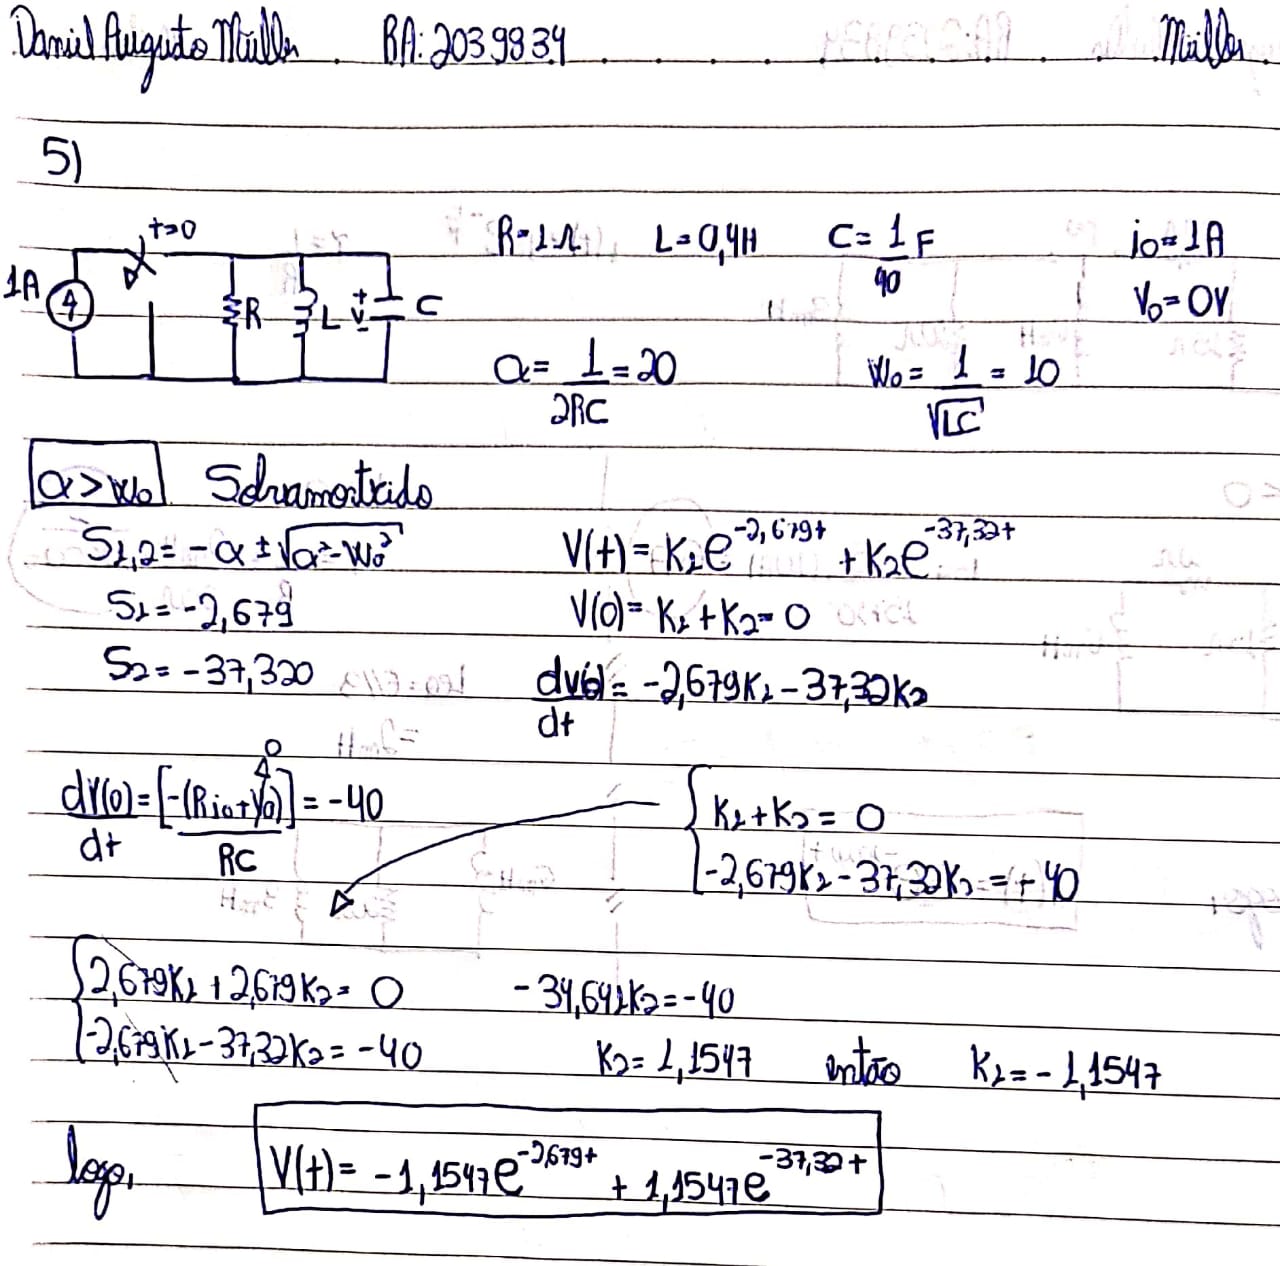 Daniel Augusto Müller . RA: 2039834 Müller
5)
t=0
1A R L + V - C
R=1Ω L=0,4H C=1/40 F i0=1A
V0=0V
α=1/2RC=20 W0=1/√LC=10
α>W0 Sobreamortecido
S1,2=-α±√α²-W0² V(t)=K1e^-2,679t+K2e^-37,32t
S1=-2,679 V(0)=K1+K2=0
S2=-37,320 dv(0)/dt=-2,679K1-37,32K2
dV(0)/dt=[-(Ri0+V0)/RC]=-40 0
K1+K2=0
-2,679K1-37,32K2=-40
2,679K1+2,679K2=0 -34,641K2=-40
-2,679K1-37,32K2=-40 K2=1,1547 então K1=-1,1547
logo, V(t)=-1,1547e^-2,679t+1,1547e^-37,32t